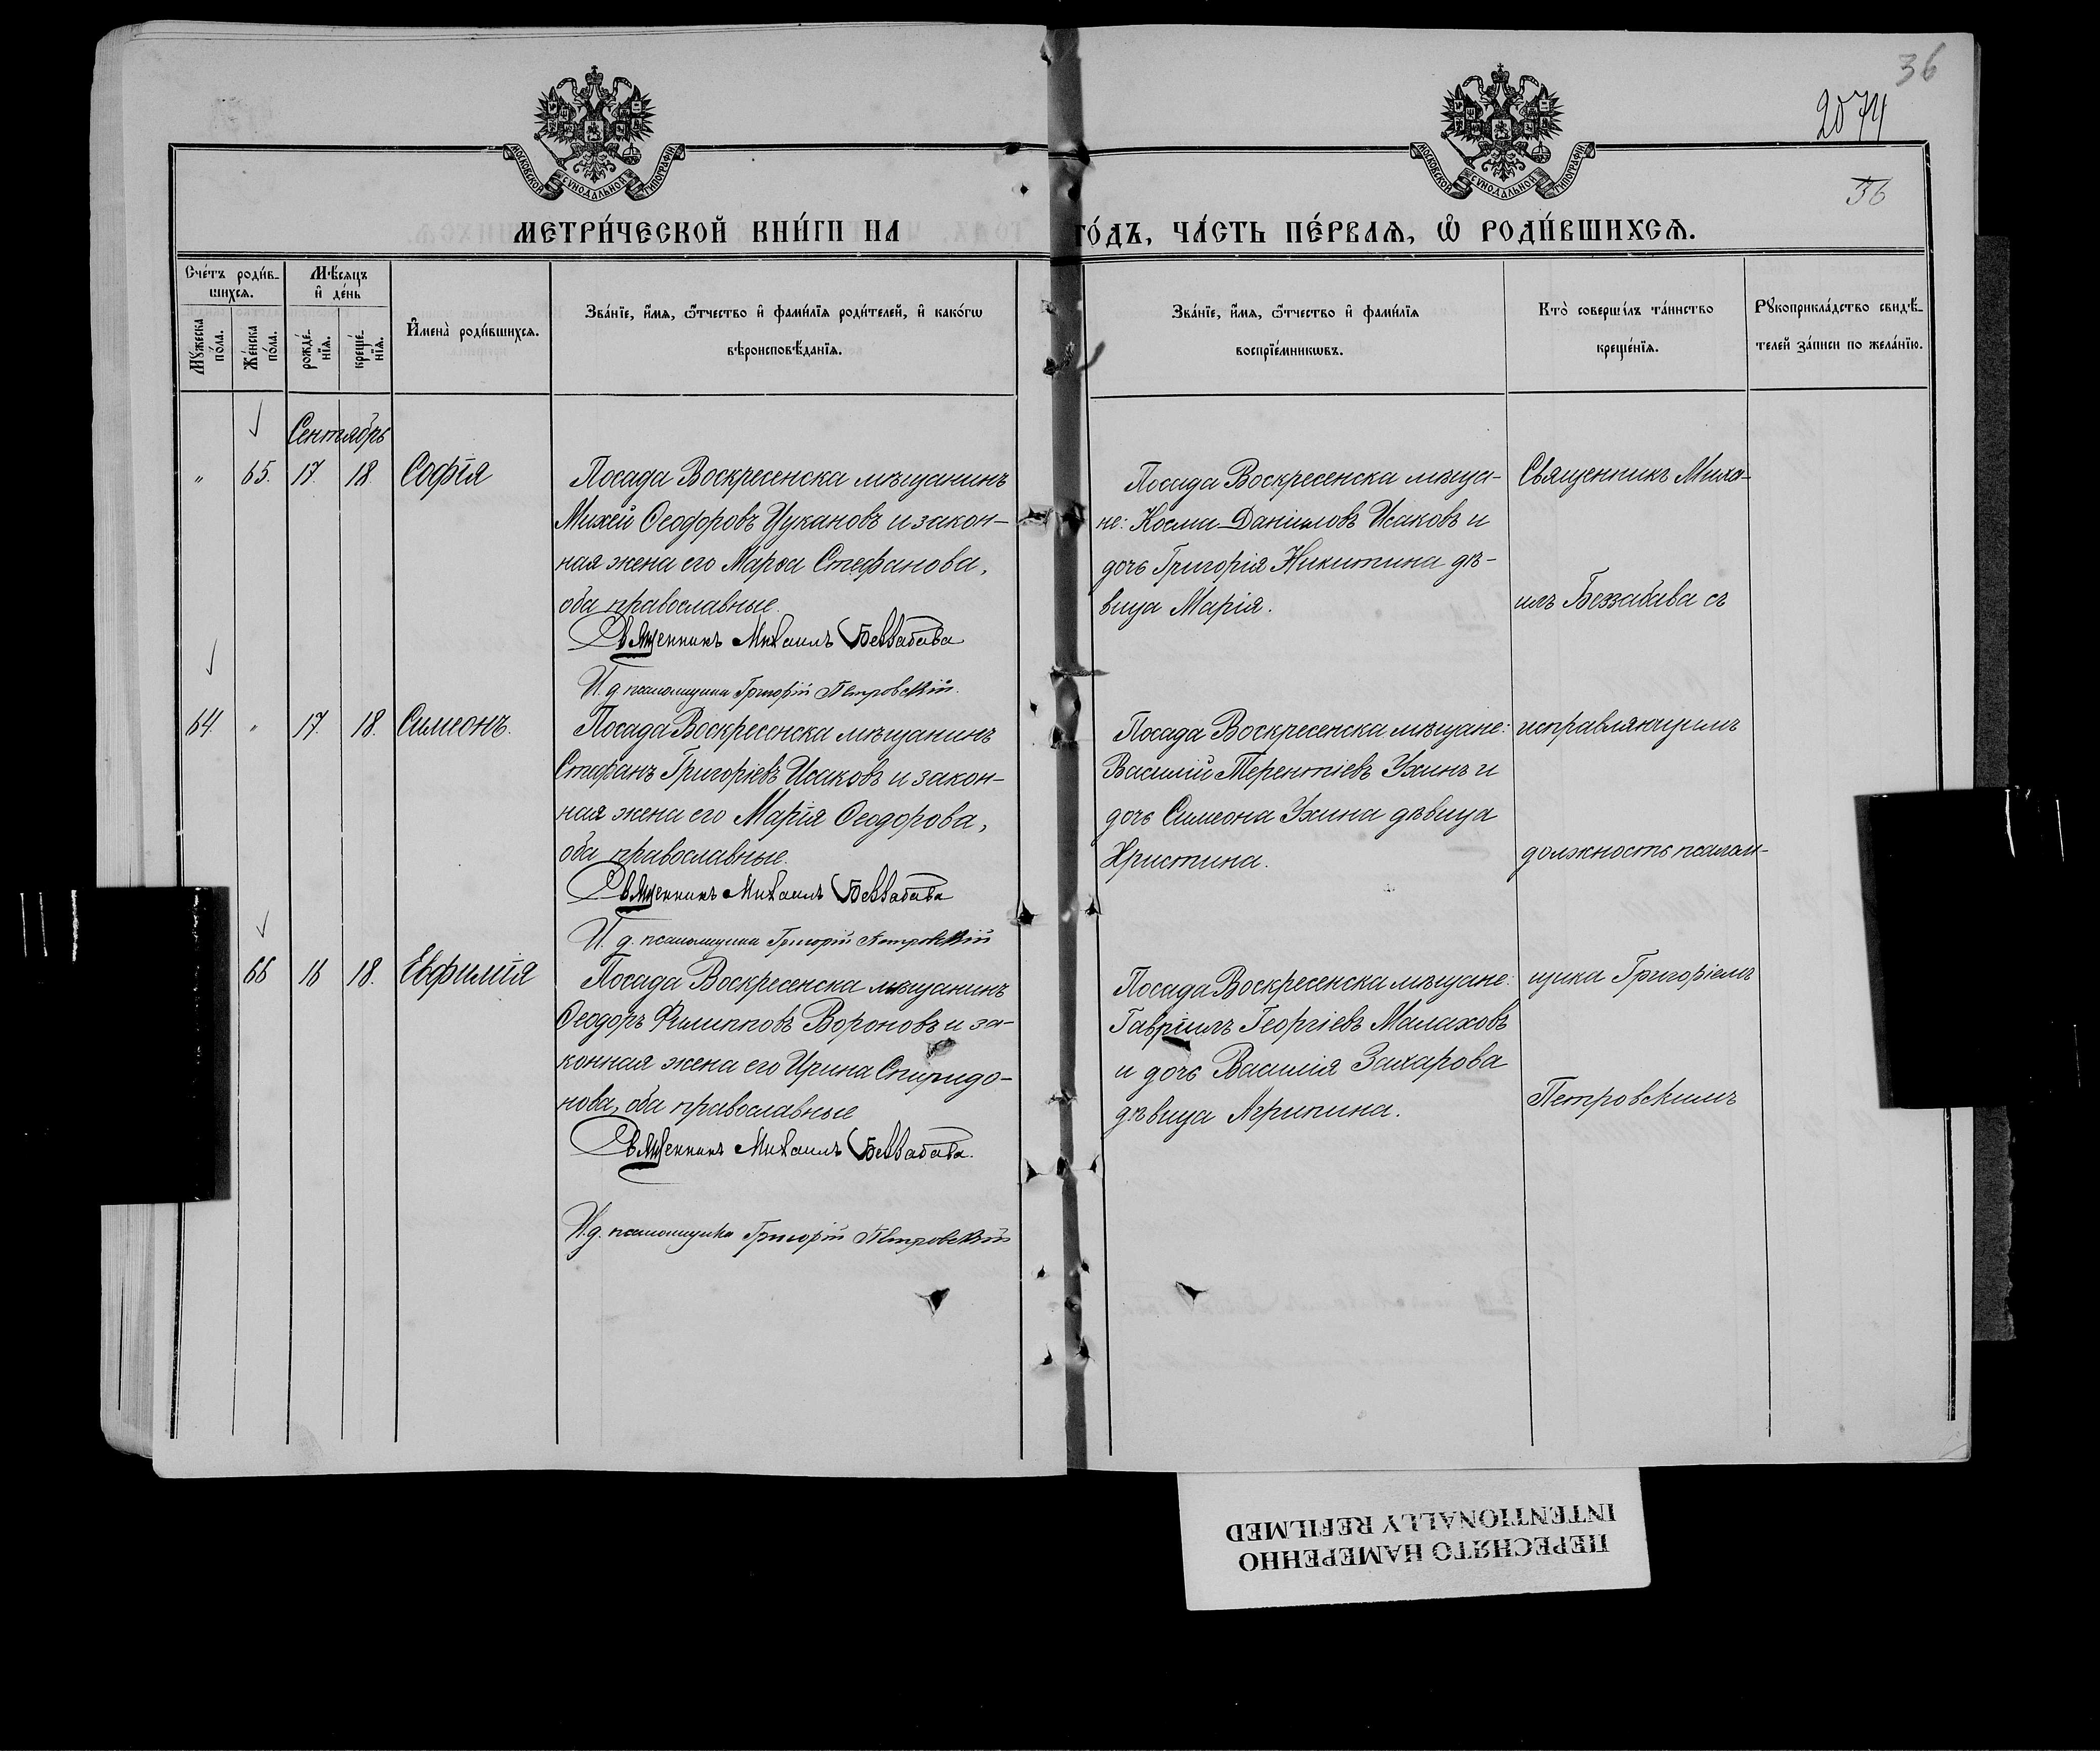 36
2074
36
МОСКОВСКОЙ СѴНОДАЛЬНОЙ ТИПОГРАФІИ
МОСКОВСКОЙ СѴНОДАЛЬНОЙ ТИПОГРАФІИ
МЕТРИ́ЧЕСКОЙ КНИ́ГИ НА
ГО́ДЪ, ЧА́СТЬ ПЕ́РВАѦ, Ѡ҆ РОДИ́ВШИХСѦ.
Сче́тъ роди́в-
шихсѧ.
Мѣ́сѧцъ
и҆ де́нь
Мꙋ́жеска
по́ла.
Же́нска
по́ла.
рожде́-
нїѧ.
креще́-
нїѧ.
И҆мена̀ роди́вшихсѧ.
Зва́нїе, и҆́мѧ, ѻ҆́тчество и҆ фами́лїѧ роди́телей, и҆ како́гѡ
вѣроисповѣ́данїѧ.
Зва́нїе, и҆́мѧ, ѻ҆́тчество и҆ фами́лїѧ
воспрїе́мникѡвъ.
Кто̀ соверши́лъ та́инство
креще́нїѧ.
Рꙋкоприкла́дство свидѣ́-
телей за́писи по жела́нїю.
Сентябрь
„ 65. 17. 18 Софія
Посада Воскресенска мѣщанинъ
Михей Ѳеодоровъ Цукановъ и закон-
ная жена его Марѳа Стефанова,
оба православные.
Священникъ Михаилъ Беззабава
И. д. псаломщика Григорій Петровскій.
Посада Воскресенска мѣща-
не: Косма Даніиловъ Исаковъ и
дочь Григорія Никитина дѣ-
вица Марія.
Священникъ Миха-
илъ Беззабава съ
64. „ 17. 18. Симеонъ.
Посада Воскресенска мѣщанинъ
Стефанъ Григоріевъ Исаковъ и закон-
ная жена его Марія Ѳеодорова,
оба православные.
Священникъ Михаилъ Беззабава
И. д. псаломщика Григорій Петровскій
Посада Воскресенска мѣщане:
Василій Терентіевъ Ухинъ и
дочь Симеона Ухина дѣвица
Христина.
исправляющимъ
должность псалом-
66 16 18. Евфимія
Посада Воскресенска мѣщанинъ
Ѳеодоръ Филипповъ Вороновъ и за-
конная жена его Ирина Спиридо-
нова, оба православные
Священникъ Михаилъ Беззабава.
И.д. псаломщика Григорій Петровскій
Посада Воскресенска мѣщане:
Гавріилъ Георгіевъ Малаховъ
и дочь Василія Захарова
дѣвица Агрипина.
щика Григоріемъ
Петровскимъ
ПЕРЕСНЯТО НАМЕРЕННО
INTENTIONALLY REFILMED